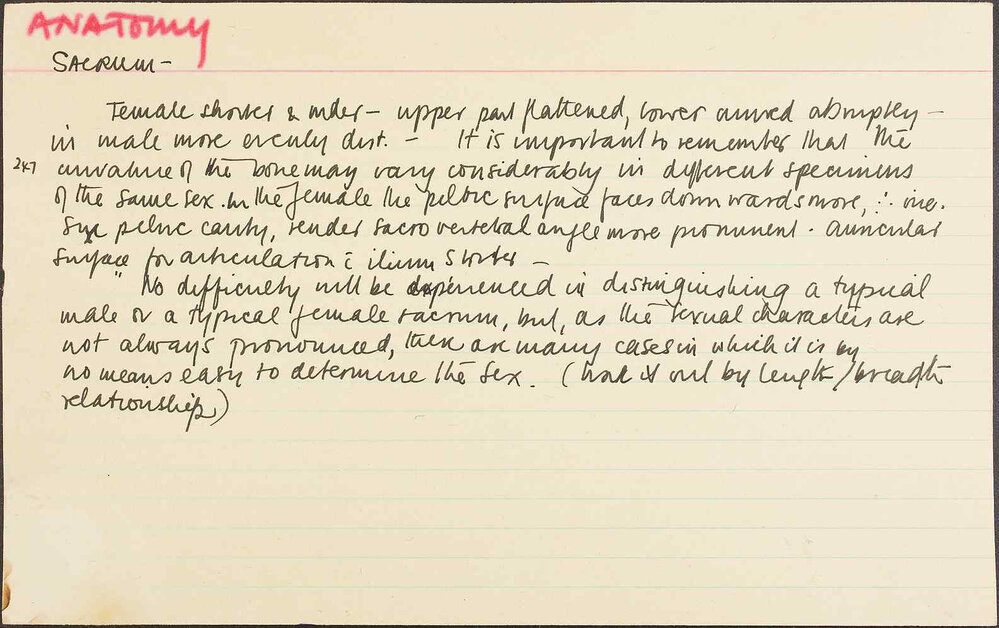 ANATOMY
SACRUM -
Female shorter & wider - upper part flattened, lower curved abruptly -
in male more evenly dist. - It is important to remember that the
247 curvature of the bone may vary considerably in different specimens
of the same sex. In the female the pelvic surface faces downwards more, ∴ incr.
size pelvic cavity, render sacro vertebral angle more prominent. Auricular
surface for articulation c̄ ilium shorter -
" No difficulty will be experienced in distinguishing a typical
male or a typical female sacrum, but, as the sexual characters are
not always pronounced, there are many cases in which it is by
no means easy to determine the sex. (work it out by length/breadth
relationship)